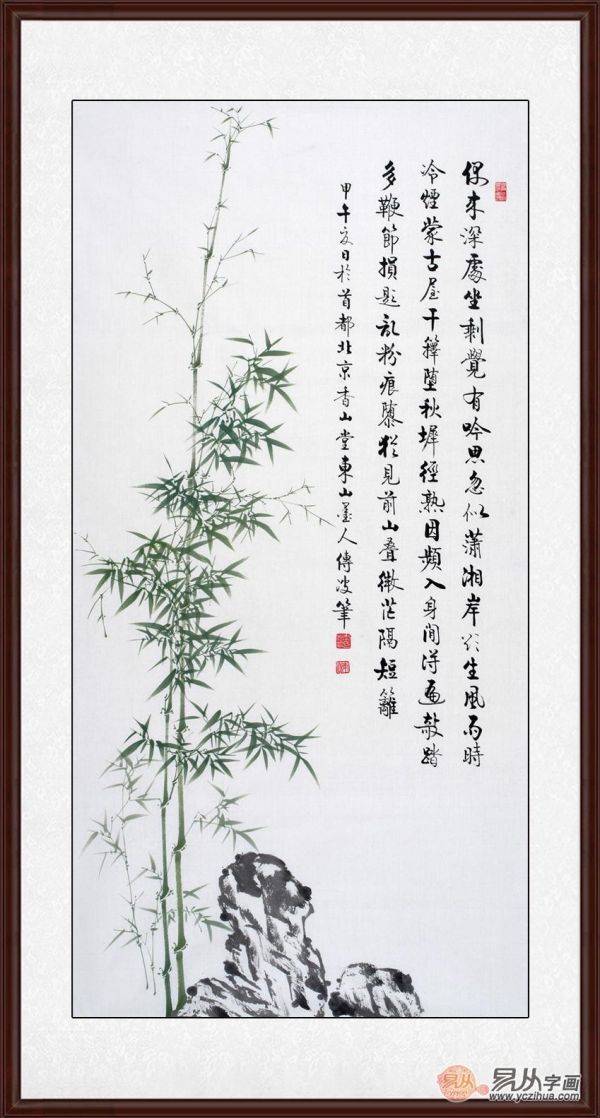 偶来深處坐剩覺有吟思忽似瀟湘岸欲生風雨時
冷煙蒙古屋干籜墮秋墀徑熟因頻入身閒得遍敧踏
多鞭節損題亂粉痕隳猶見前山疊微茫隔短籬
甲午夏日於首都北京香山堂東山墨人波筆
易从
易从字画
www.yczihua.com